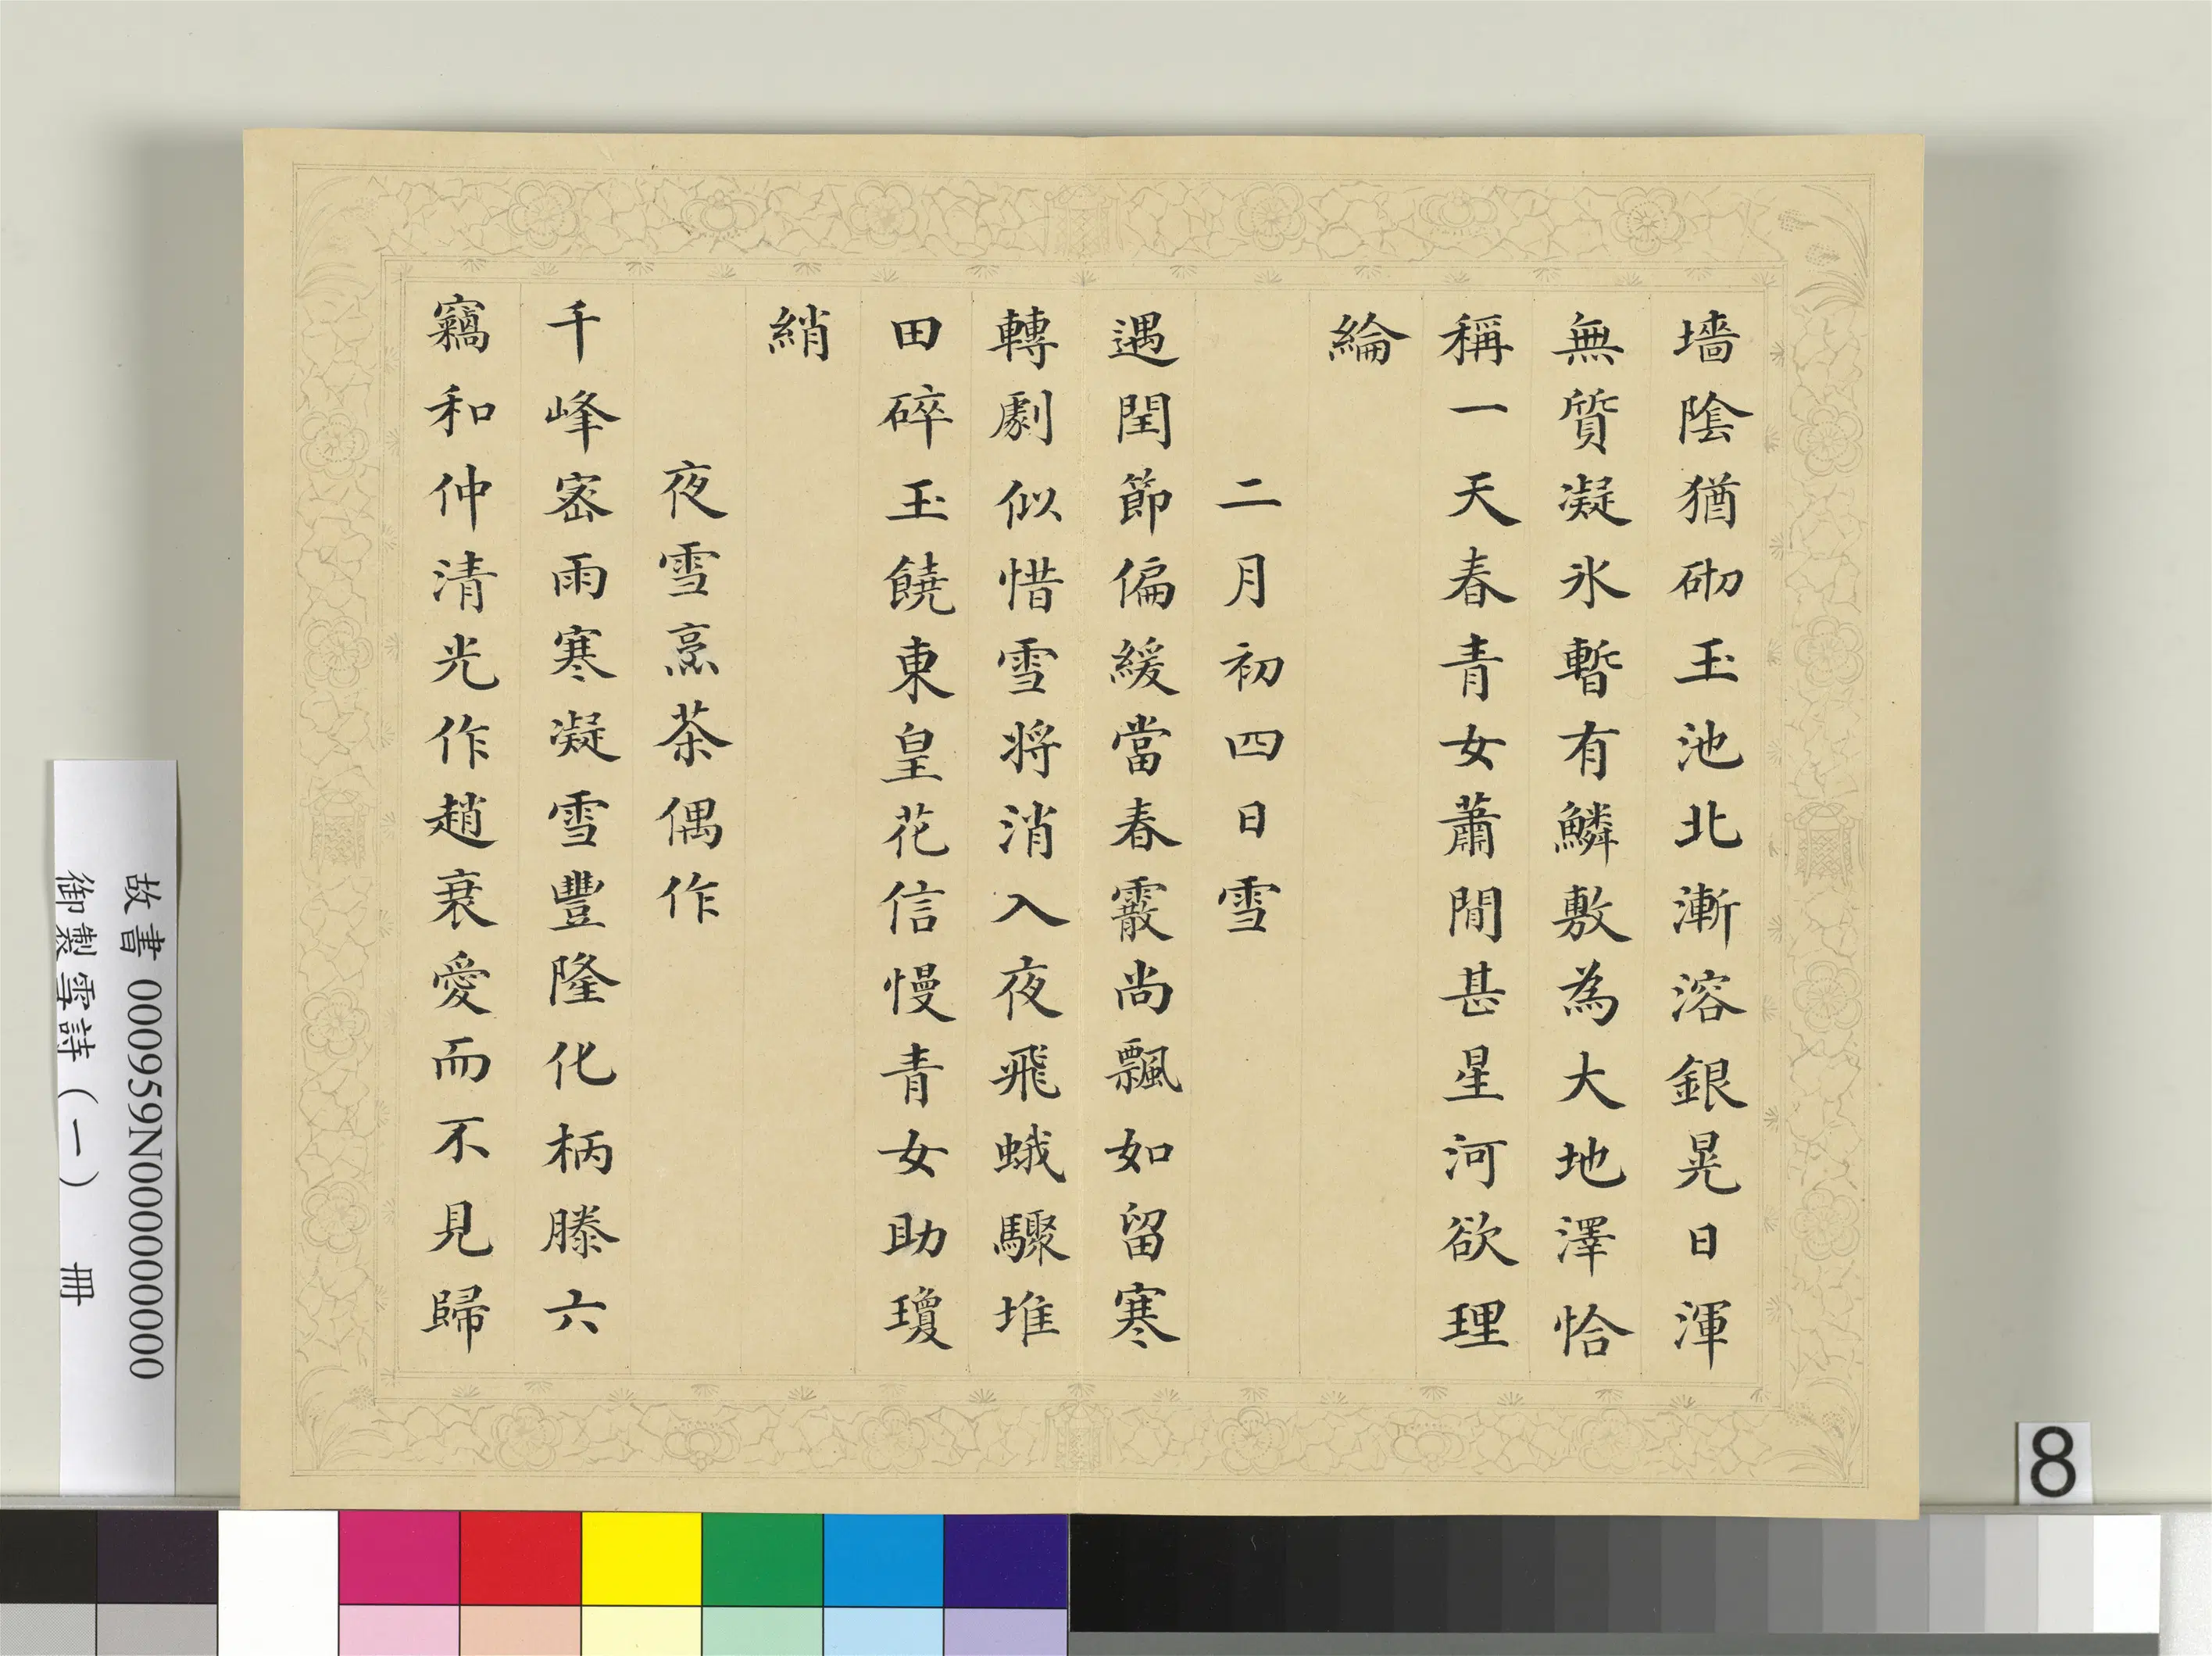 墻陰猶砌玉池北漸溶銀晃日渾
無質凝氷暫有鱗敷為大地澤恰
稱一天春青女蕭閒甚星河欲理
綸
二月初四日雪
遇閏節偏緩當春霰尚飄如留寒
轉劇似惜雪將消入夜飛蛾驟堆
田碎玉饒東皇花信慢青女助瓊
綃
夜雪烹茶偶作
千峰宻雨寒凝雪豐隆化柄滕六
竊和仲清光作趙衰愛而不見歸
故書 000959N000000000
御製雪詩(一) 冊
8